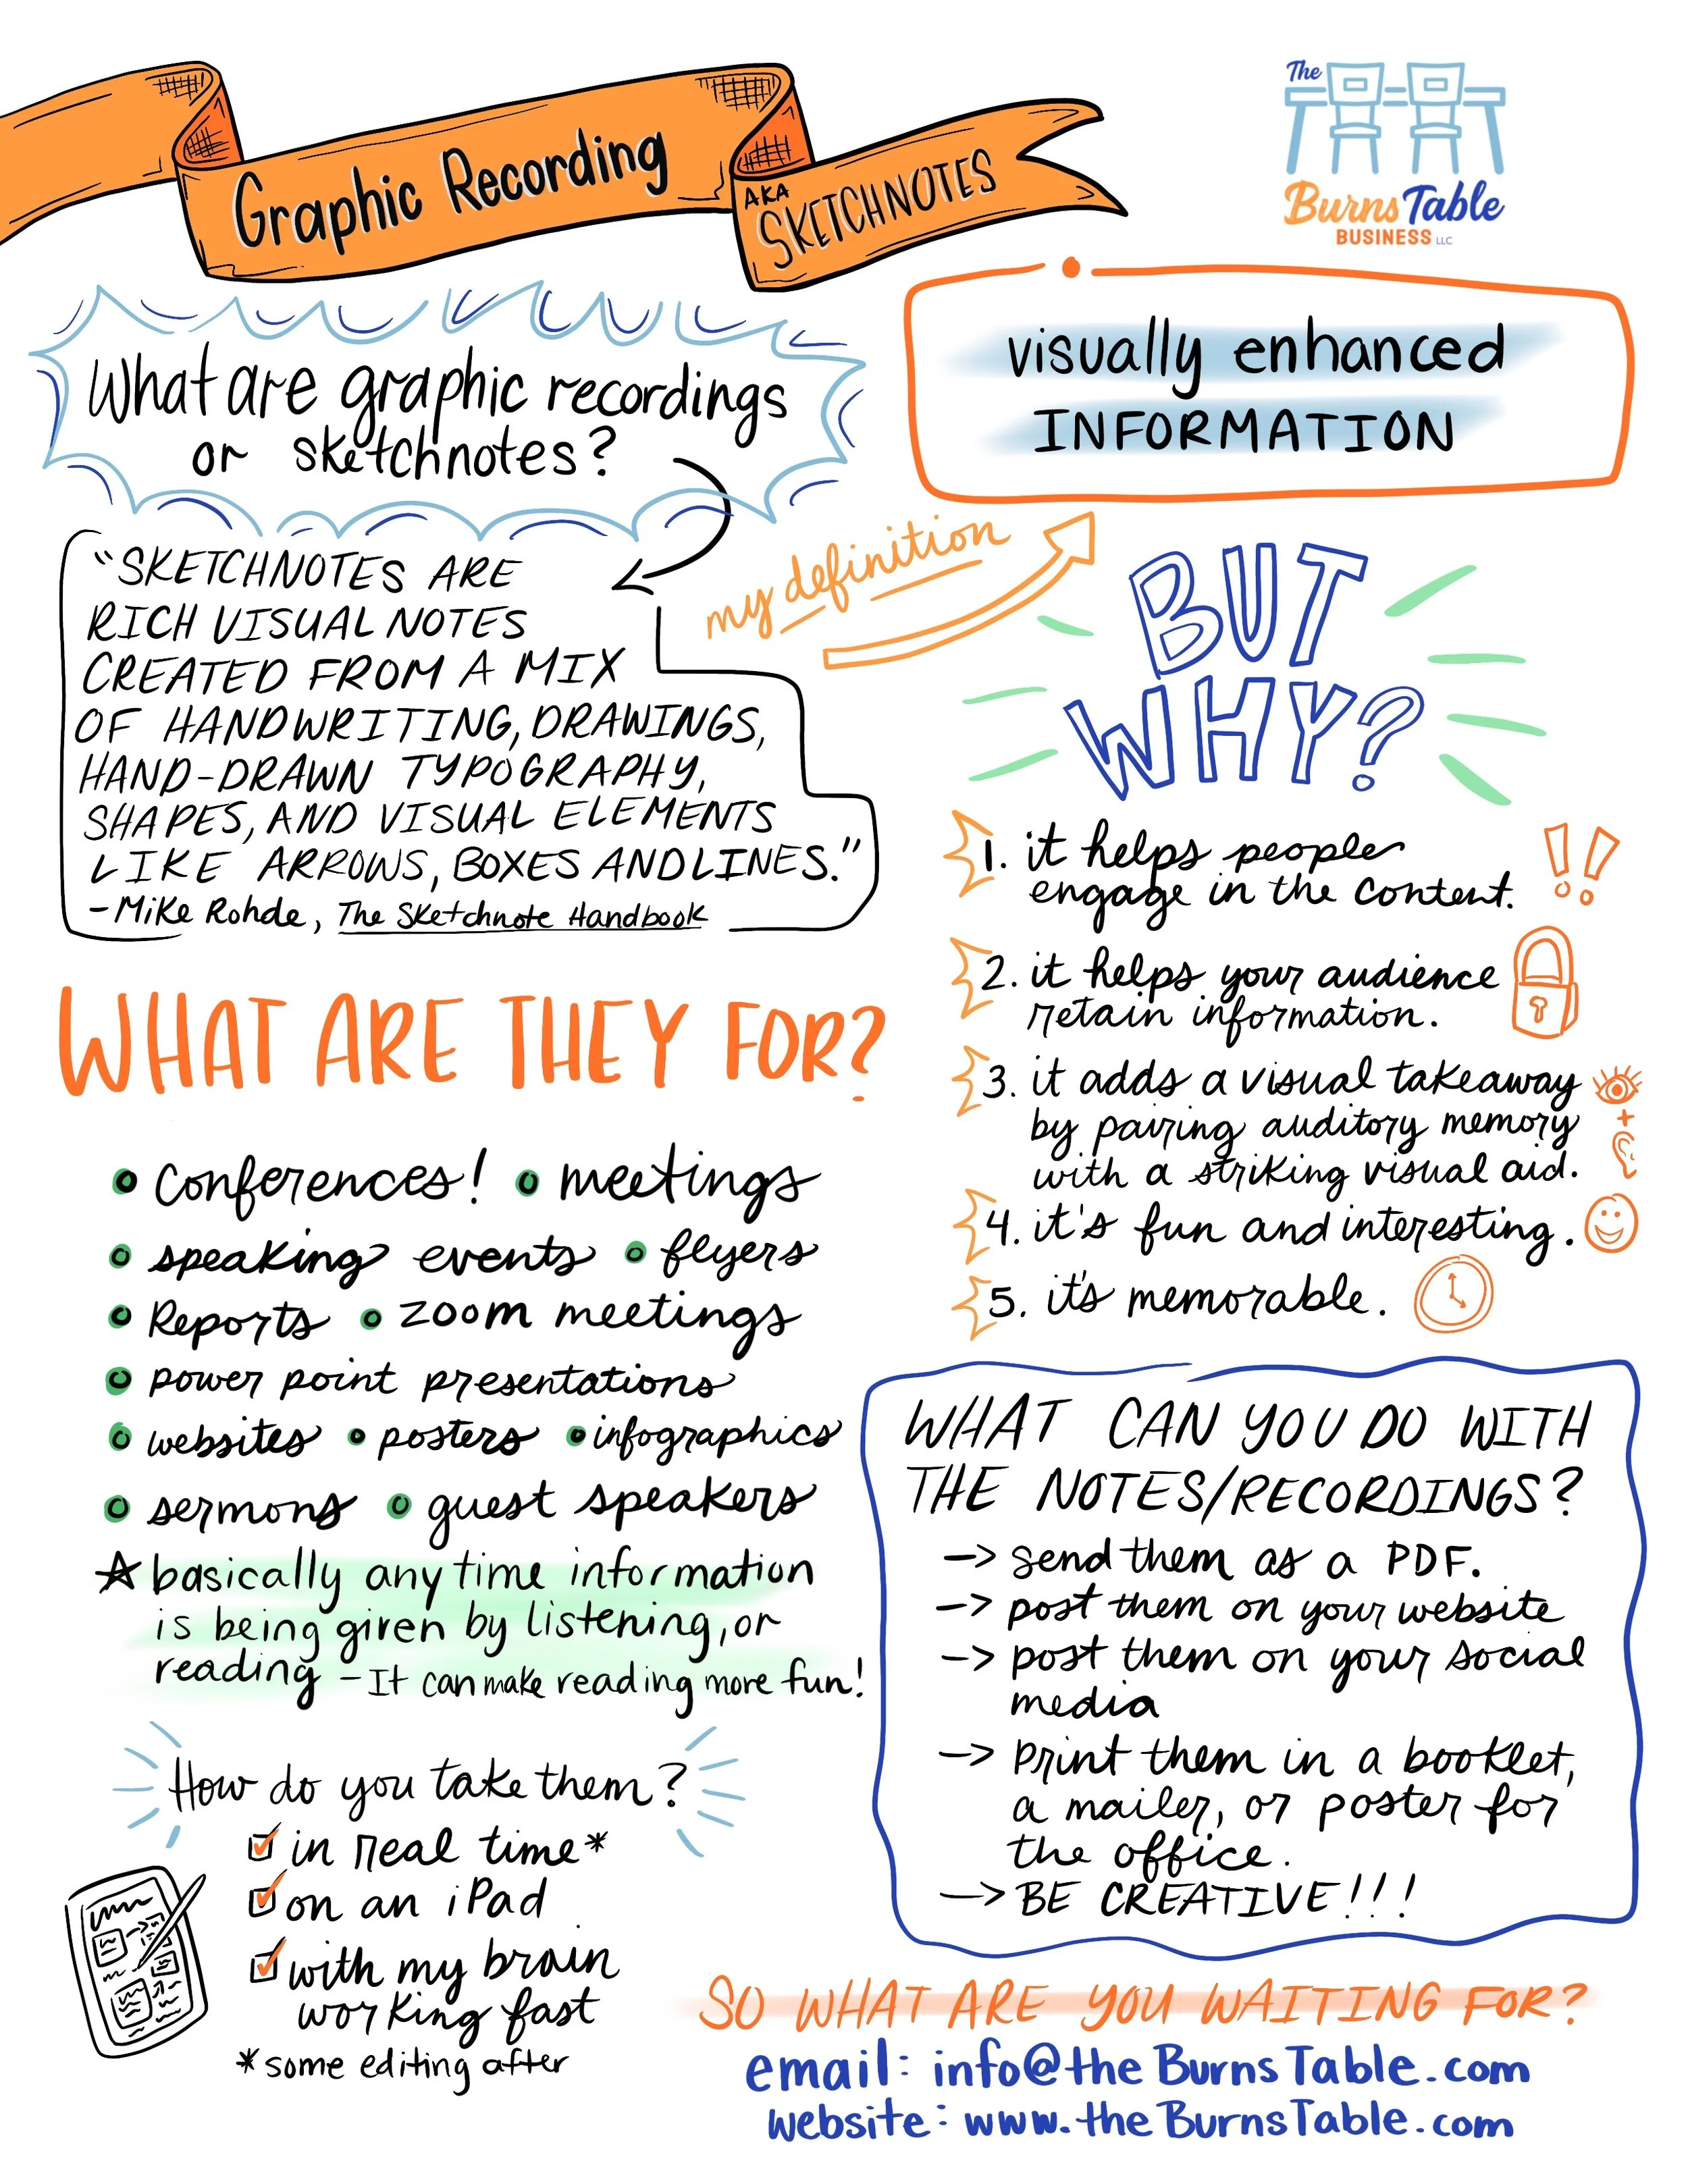 Graphic Recording
AKA
SKETCHNOTES
The
Burns Table
BUSINESS LLC
What are graphic recordings
or sketchnotes?
visually enhanced
INFORMATION
my definition
"SKETCHNOTES ARE
RICH VISUAL NOTES
CREATED FROM A MIX
OF HANDWRITING, DRAWINGS,
HAND-DRAWN TYPOGRAPHY,
SHAPES, AND VISUAL ELEMENTS
LIKE ARROWS, BOXES AND LINES."
- Mike Rohde, The Sketchnote Handbook
BUT
WHY?
1. it helps people
engage in the content.
2. it helps your audience
retain information.
3. it adds a visual takeaway
by pairing auditory memory
with a striking visual aid.
4. it's fun and interesting.
5. it's memorable.
WHAT ARE THEY FOR?
• conferences! • meetings
• speaking events • flyers
• Reports • zoom meetings
• power point presentations
• websites • posters • infographics
• sermons • guest speakers
☆ basically any time information
is being given by listening, or
reading - It can make reading more fun!
How do you take them?
☑ in real time*
☑ on an iPad
☑ with my brain
working fast
*some editing after
WHAT CAN YOU DO WITH
THE NOTES/RECORDINGS?
-> send them as a PDF.
-> post them on your website
-> post them on your social
media
-> print them in a booklet,
a mailer, or poster for
the office.
-> BE CREATIVE!!!
SO WHAT ARE YOU WAITING FOR?
email: info@theBurnsTable.com
website: www.theBurnsTable.com